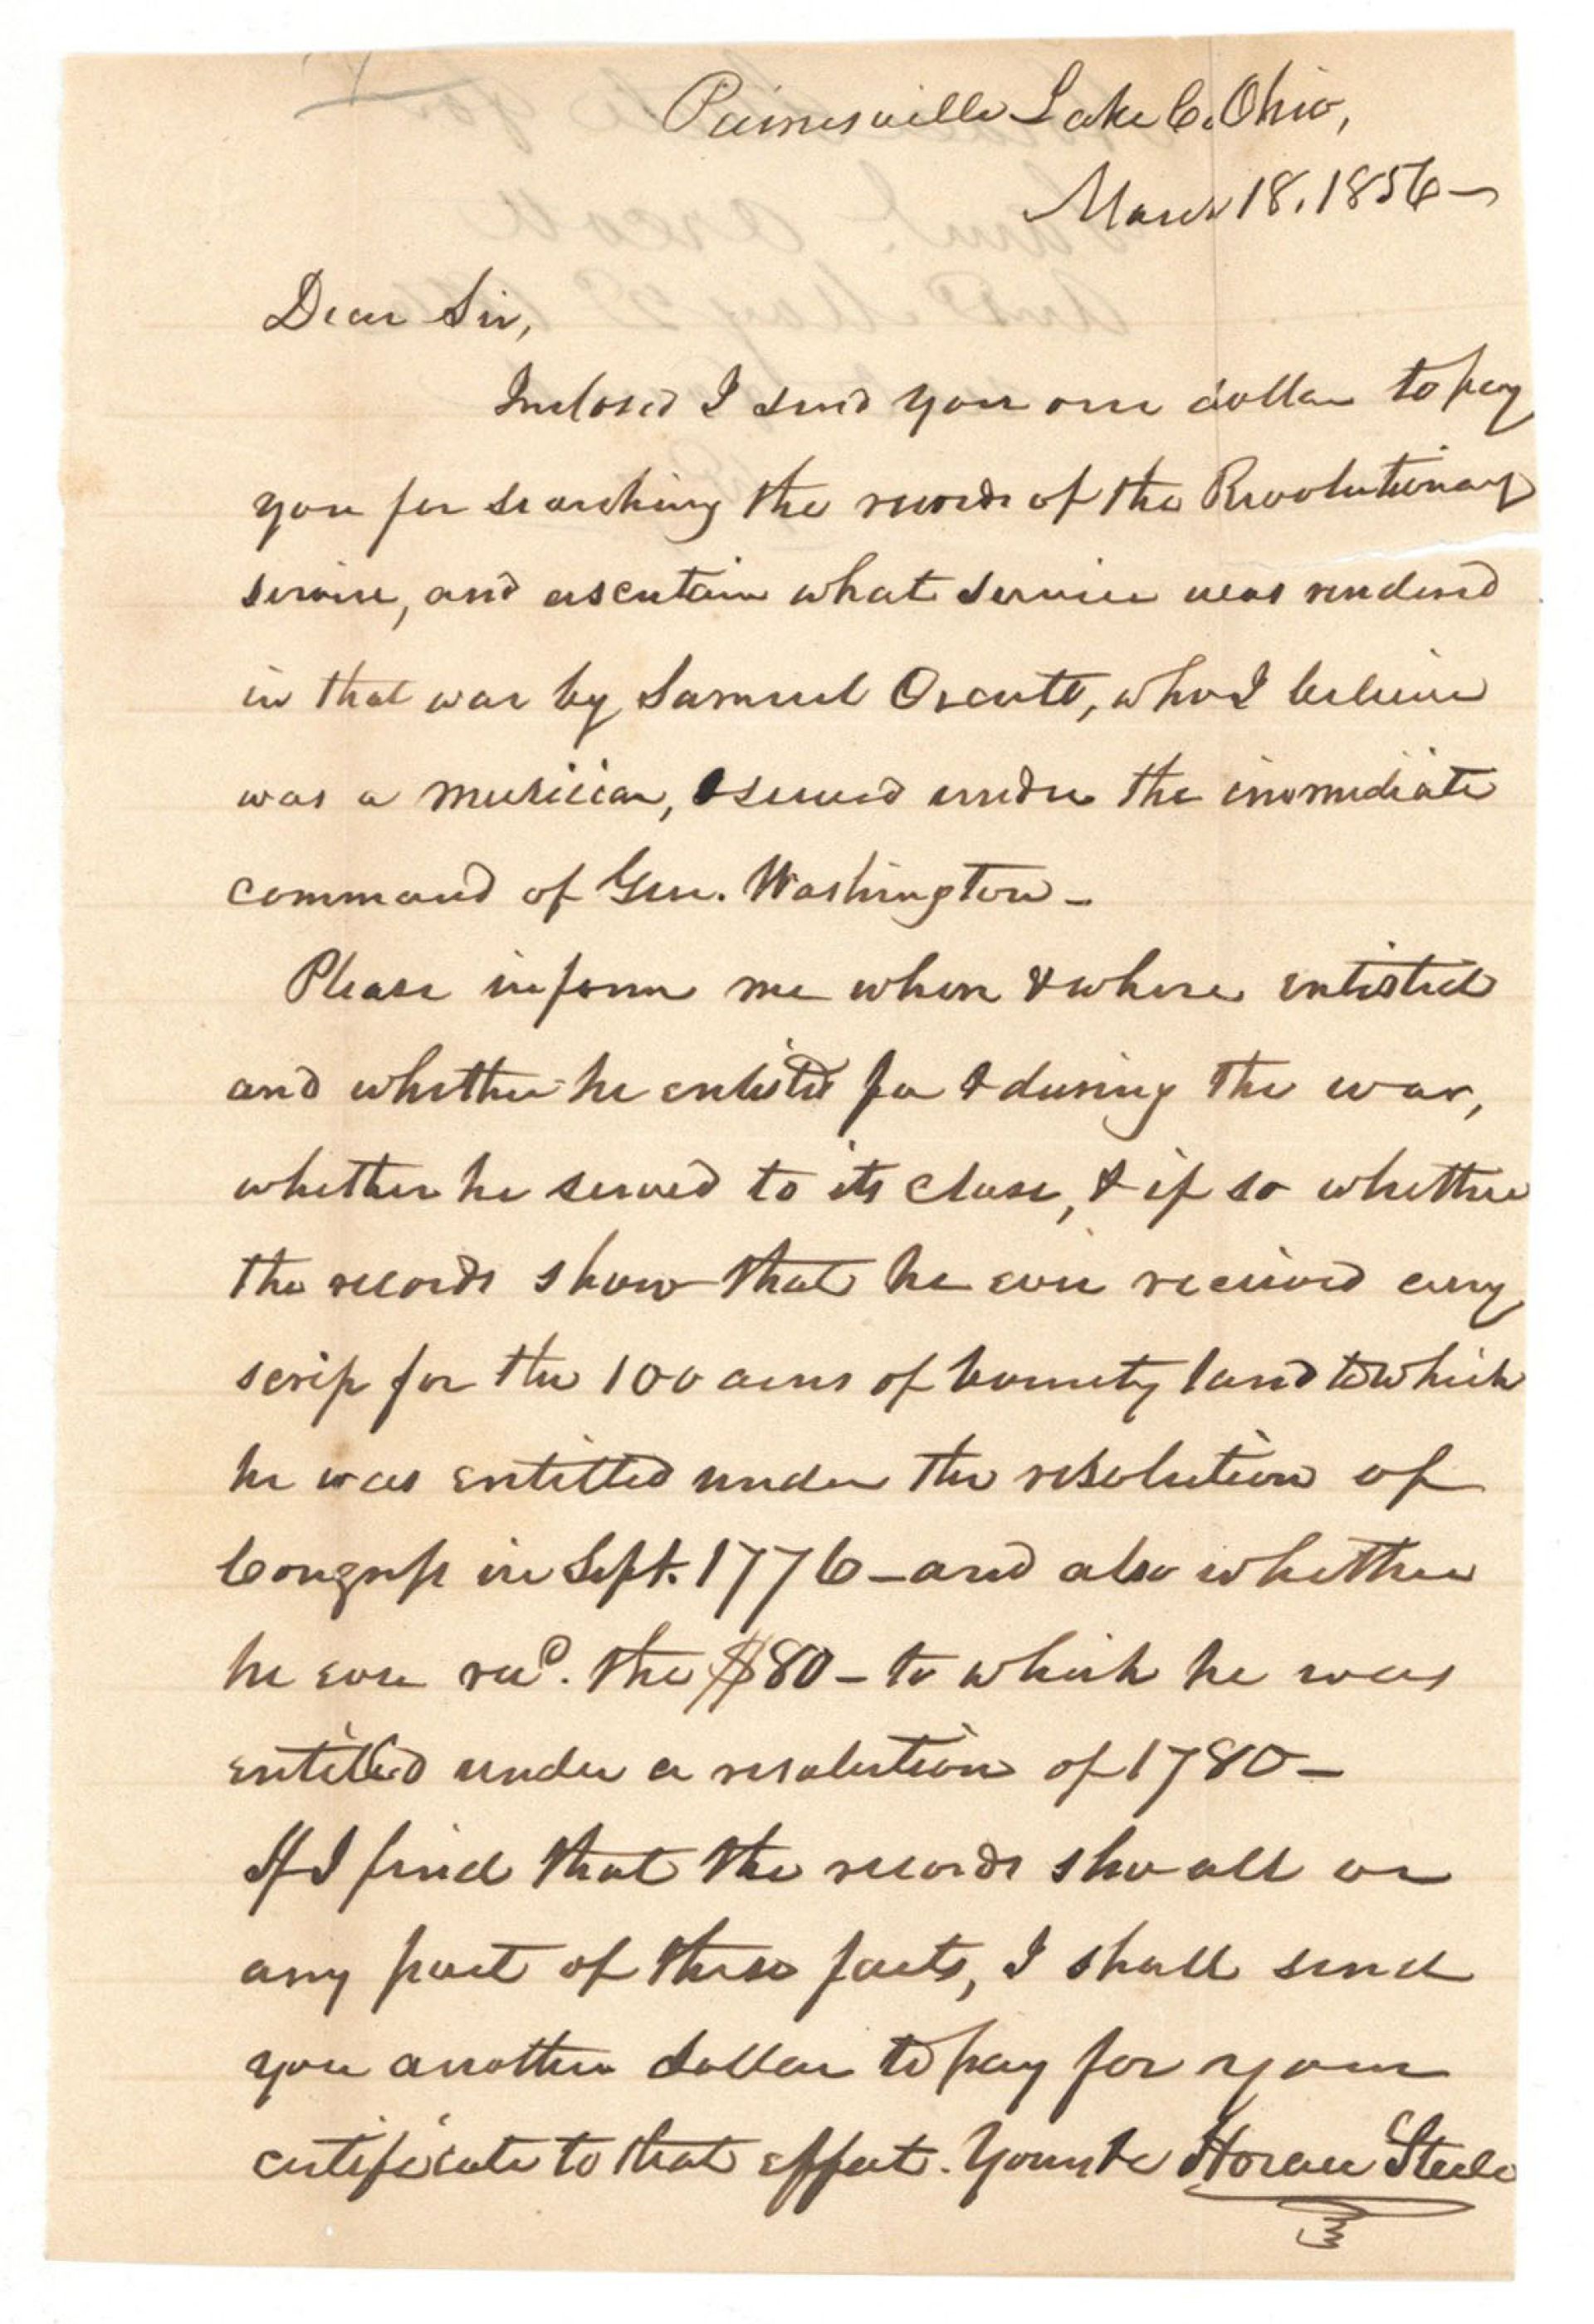 Painesville Lake Co. Ohio,
March 18. 1856—
Dear Sir,
Inclosed I send you one dollar to pay
you for searching the records of the Revolutionary
service, and ascertain what service was rendered
in that war by Samuel Orcutt, who I believe
was a musician, & served under the immediate
command of Gen. Washington—
Please inform me when & where enlisted
and whether he enlisted for & during the war,
whether he served to its close, & if so whether
the records show that he ever received any
scrip for the 100 acres of bounty land to which
he was entitled under the resolution of
Congress in Sept. 1776—and also whether
he ever recd. the $80— to which he was
entitled under a resolution of 1780—
If I find that the records sho all or
any part of these facts, I shall send
you another dollar to pay for your
certificate to that effect. Yours &c Horace Steele